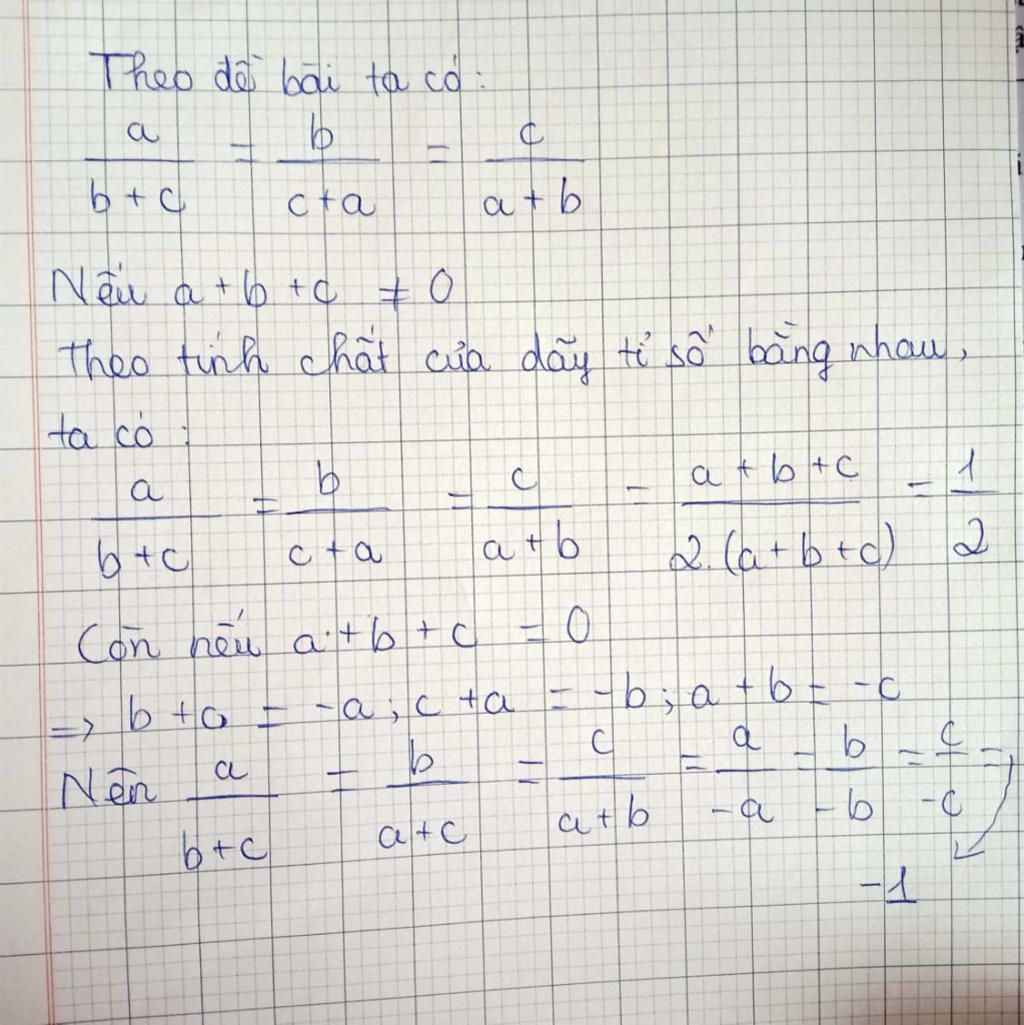 Theo đề bài ta có:
a/(b+c) = b/(c+a) = c/(a+b)
Nếu a+b+c ≠ 0
Theo tính chất của dãy tỉ số bằng nhau,
ta có:
a/(b+c) = b/(c+a) = c/(a+b) = (a+b+c)/(2.(a+b+c)) = 1/2
Còn nếu a+b+c = 0
=> b+c = -a; c+a = -b; a+b = -c
Nên a/(b+c) = b/(a+c) = c/(a+b) = a/(-a) = b/(-b) = c/(-c) =
-1